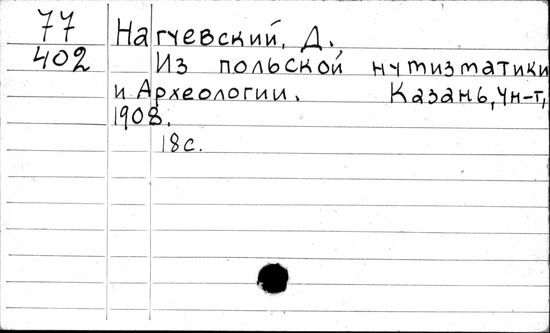 77
402
Нагуевский, Д.
Из польской нумизматики
и Археологии. Казань, Ун-т,
1908.
18с.